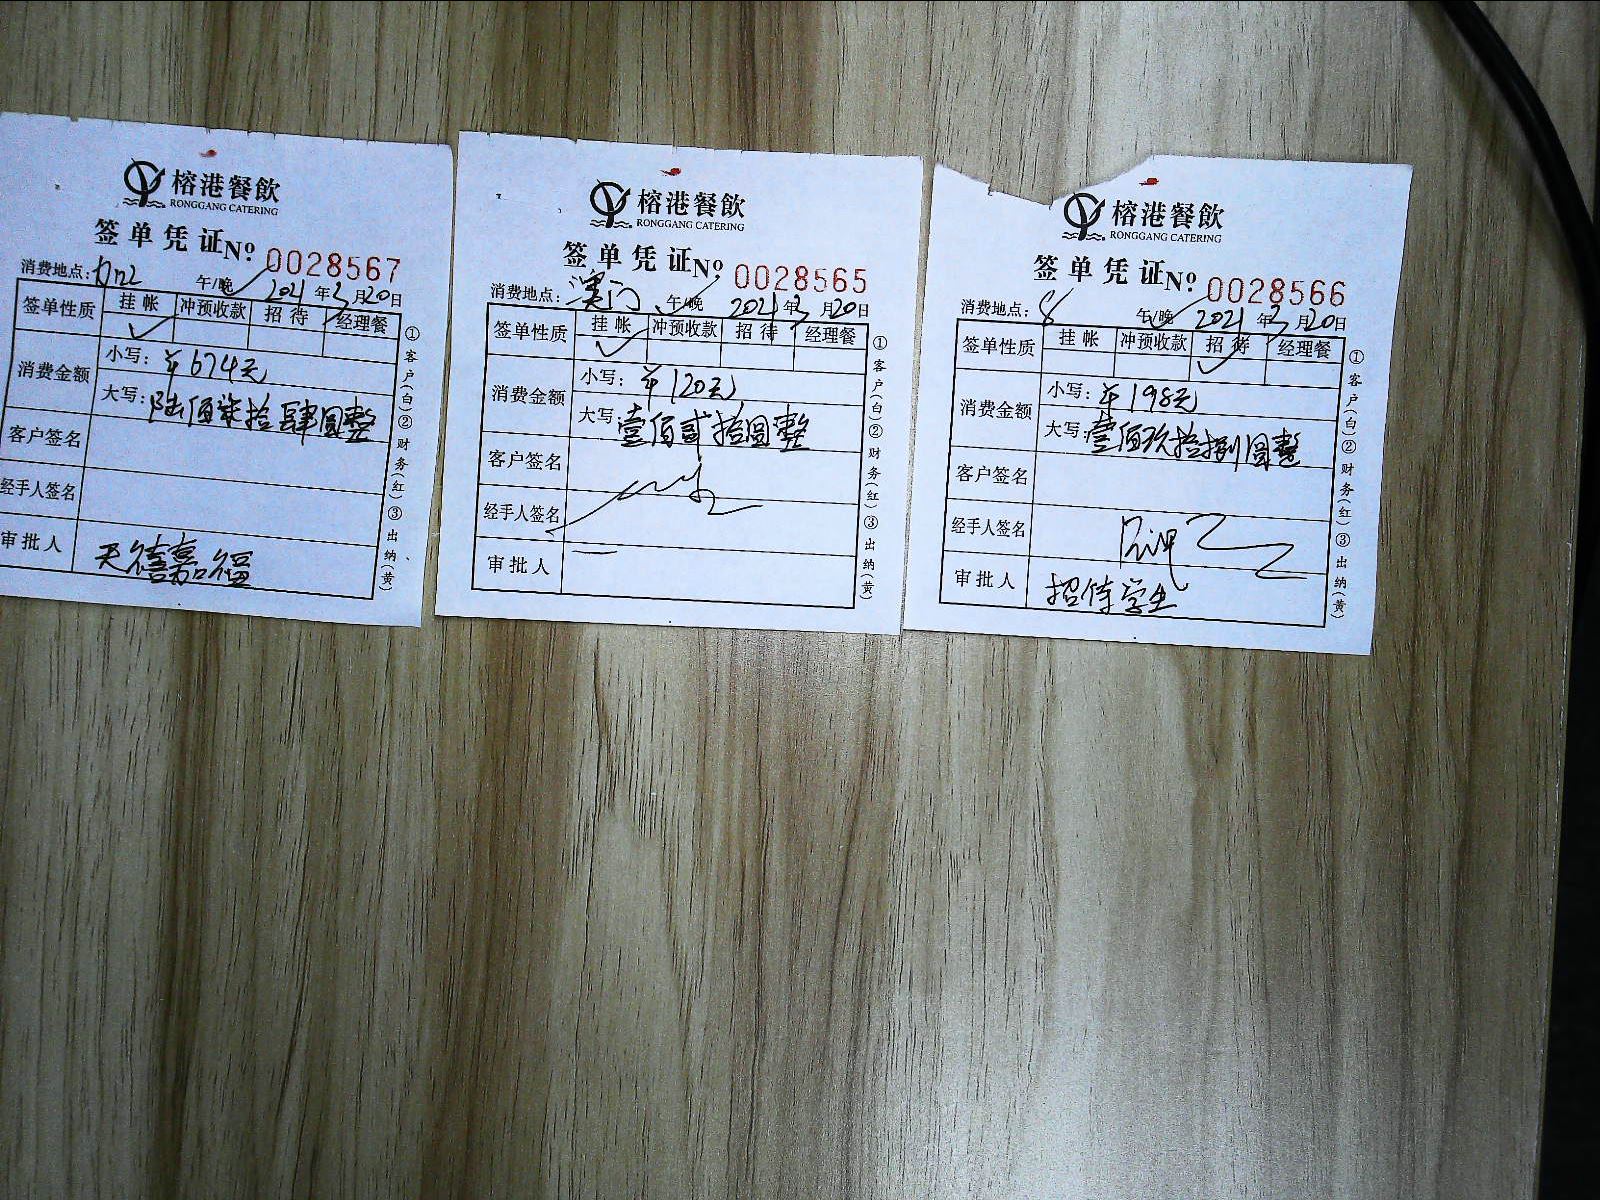 榕港餐飲
RONGGANG CATERING
签单凭证№ 0028567
消费地点: 午/晚 2021年3月20日
签单性质 挂帐 冲预收款 招待 经理餐
✓
消费金额 小写: ¥674元
大写: 陆佰柒拾肆圆整
客户签名
经手人签名
审批人 天禧嘉福
①客户(白)②财务(红)③出纳(黄)
榕港餐飲
RONGGANG CATERING
签单凭证№ 0028565
消费地点: 澳门 午/晚 2021年3月20日
签单性质 挂帐 冲预收款 招待 经理餐
✓
消费金额 小写: ¥120元
大写: 壹佰贰拾圆整
客户签名
经手人签名
审批人
①客户(白)②财务(红)③出纳(黄)
榕港餐飲
RONGGANG CATERING
签单凭证№ 0028566
消费地点: 8 午/晚 2021年3月20日
签单性质 挂帐 冲预收款 招待 经理餐
✓
消费金额 小写: ¥198元
大写: 壹佰玖拾捌圆整
客户签名
经手人签名
审批人 招待学生
①客户(白)②财务(红)③出纳(黄)